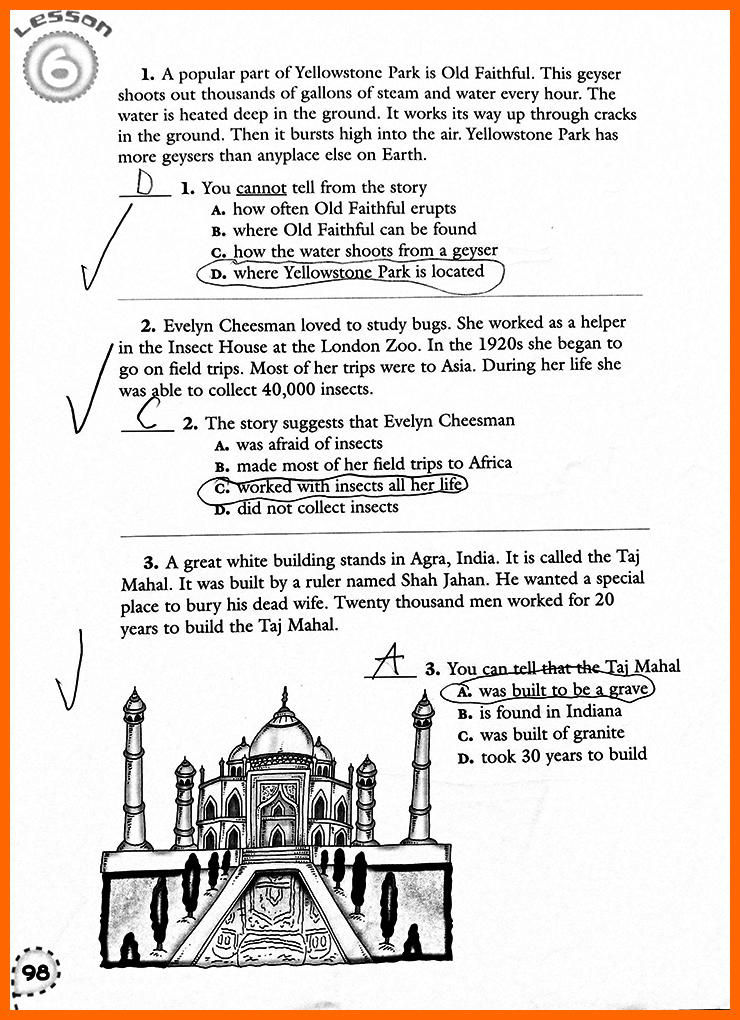 Lesson
6
1. A popular part of Yellowstone Park is Old Faithful. This geyser
shoots out thousands of gallons of steam and water every hour. The
water is heated deep in the ground. It works its way up through cracks
in the ground. Then it bursts high into the air. Yellowstone Park has
more geysers than anyplace else on Earth.
D 1. You cannot tell from the story
A. how often Old Faithful erupts
B. where Old Faithful can be found
C. how the water shoots from a geyser
D. where Yellowstone Park is located
2. Evelyn Cheesman loved to study bugs. She worked as a helper
in the Insect House at the London Zoo. In the 1920s she began to
go on field trips. Most of her trips were to Asia. During her life she
was able to collect 40,000 insects.
C 2. The story suggests that Evelyn Cheesman
A. was afraid of insects
B. made most of her field trips to Africa
C. worked with insects all her life
D. did not collect insects
3. A great white building stands in Agra, India. It is called the Taj
Mahal. It was built by a ruler named Shah Jahan. He wanted a special
place to bury his dead wife. Twenty thousand men worked for 20
years to build the Taj Mahal.
A 3. You can tell that the Taj Mahal
A. was built to be a grave
B. is found in Indiana
C. was built of granite
D. took 30 years to build
98